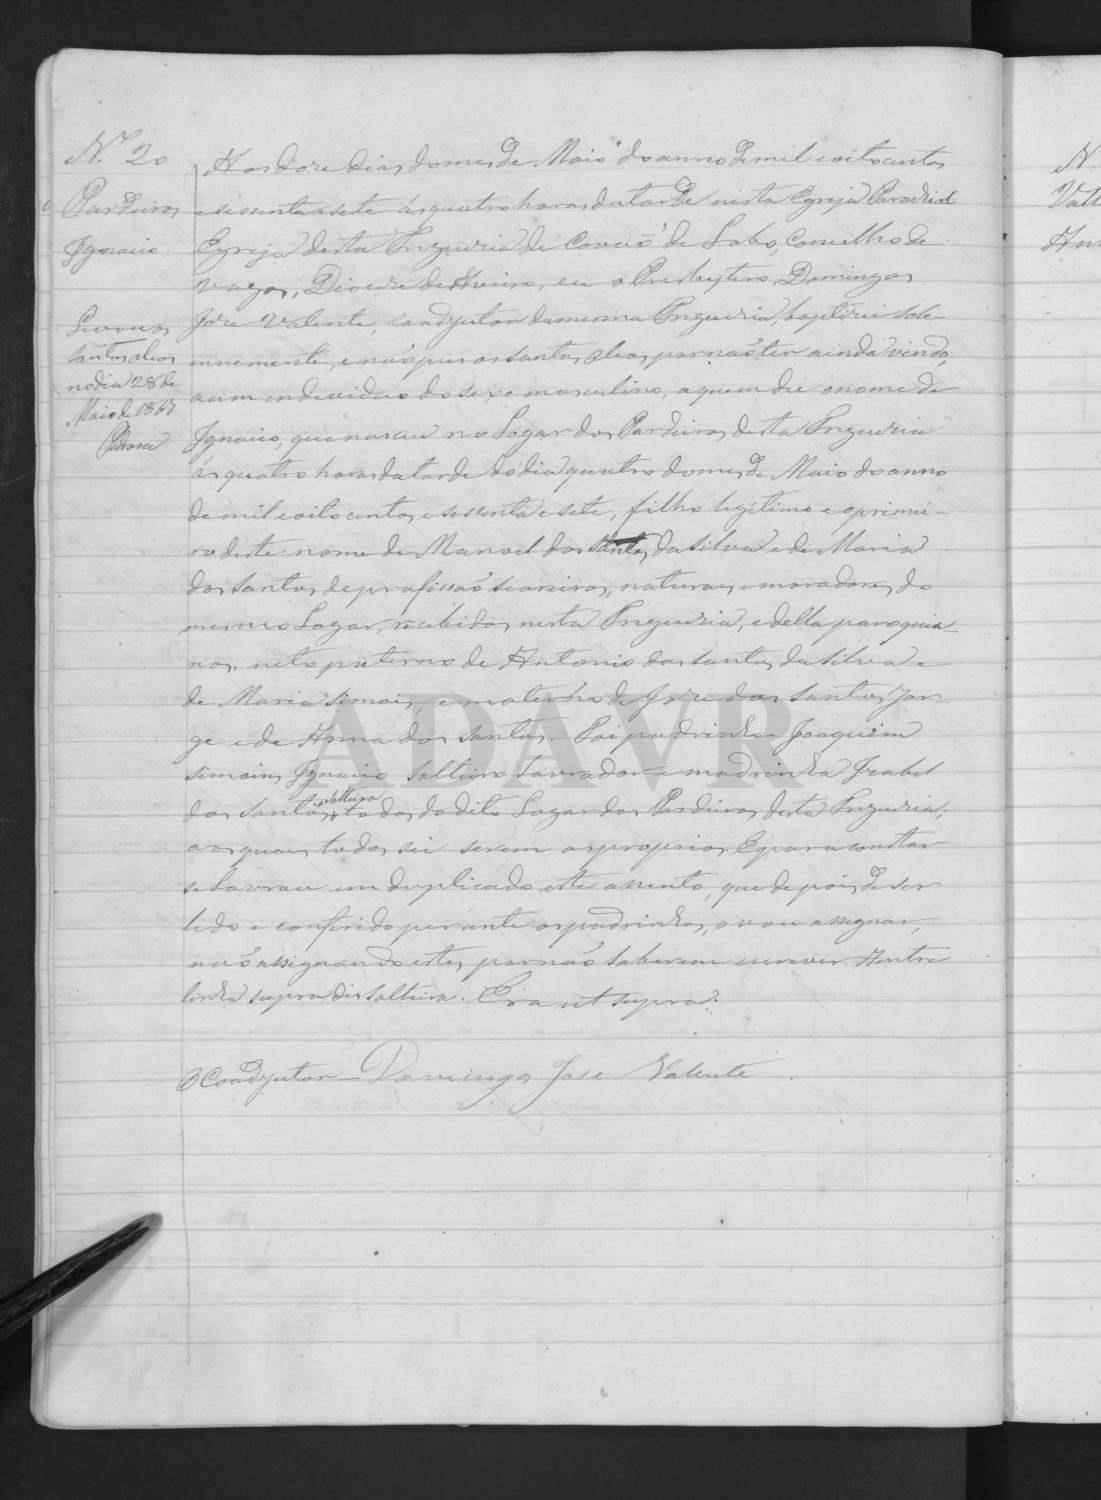 N.º 20
Pardeiros
Ignacio
Levou os
santos oleos
no dia 28 de
Maio de 1867
Aos doze dias do mes de Maio do anno de mil e oito centos
e sessenta e sete ás quatro horas da tarde nesta Egreja Parochial
Egreja desta Freguezia de Covão do Lobo, Concelho de
Vagos, Diocese de Aveiro, eu o Presbytero, Domingos
Jose Valente, coadjutor da mesma Freguezia, baptizei sole-
mnemente, e não pus os santos oleos, por não ter ainda vindo,
a um individuo do sexo masculino, a quem dei o nome de
Ignacio, que nasceu no Logar dos Pardeiros, desta Freguezia
ás quatro horas da tarde do dia quatro do mes de Maio do anno
de mil e oito centos e sessenta e sete, filho legitimo e o primei-
ro deste nome de Manoel dos Santos da Silva e de Maria
dos Santos, de profissão seareiros, naturaes e moradores do
mesmo Logar, recebidos nesta Freguezia, e della paroquia-
nos, neto paterno de Antonio dos Santos da Silva e
de Maria Simois, e materno de Jose dos Santos Jor-
ge e de Anna dos Santos. Foi padrinho Joaquim
Simoins Ignacio solteiro Lavrador e madrinha Izabel
solteira
dos Santos, todos do dito Logar dos Pardeiros desta Freguezia,
aos quaes todos sei serem os proprios. E para constar
se lavrou em duplicado este assento, que depois de ser
lido e conferido perante os padrinhos, o vou assignar,
não assignando estes, por não saberem escrever. A entre
linha supra diz solteira. Era ut supra.
O Coadjutor - Domingos Jose Valente
ADAVR
N.
Vall